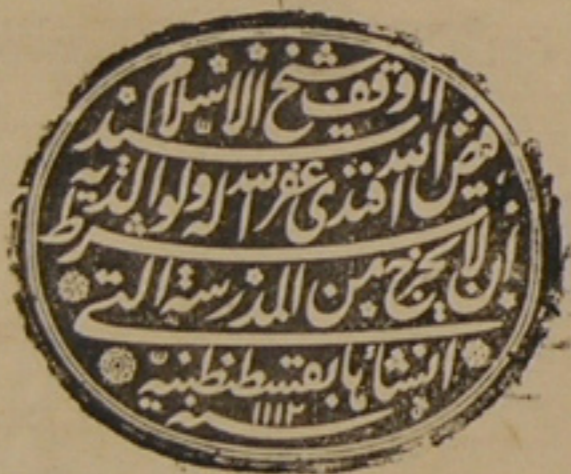 وقف شيخ الاسلام السيد
فيض الله افندى غفر الله له ولوالديه
بشرط ان لا يخرج من المدرسة التى
انشأها بقسطنطينية
سنة ١١١٢